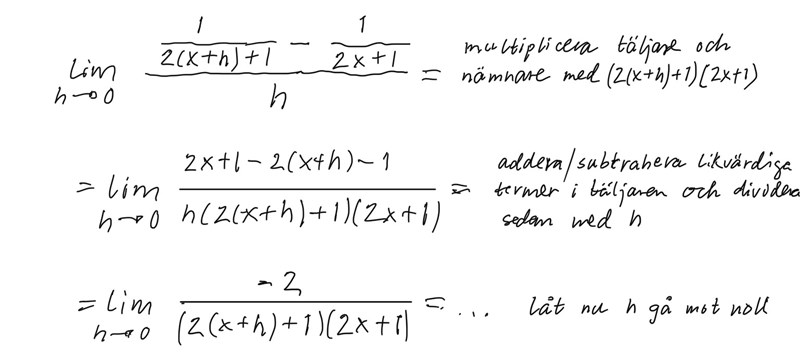 lim h→0 (1/(2(x+h)+1) − 1/(2x+1))/h = multiplicera täljare och
nämnare med (2(x+h)+1)(2x+1)
= lim h→0 (2x+1−2(x+h)−1)/(h(2(x+h)+1)(2x+1)) = addera/subtrahera likvärdiga
termer i täljaren och dividera
sedan med h
= lim h→0 −2/((2(x+h)+1)(2x+1)) = ... låt nu h gå mot noll